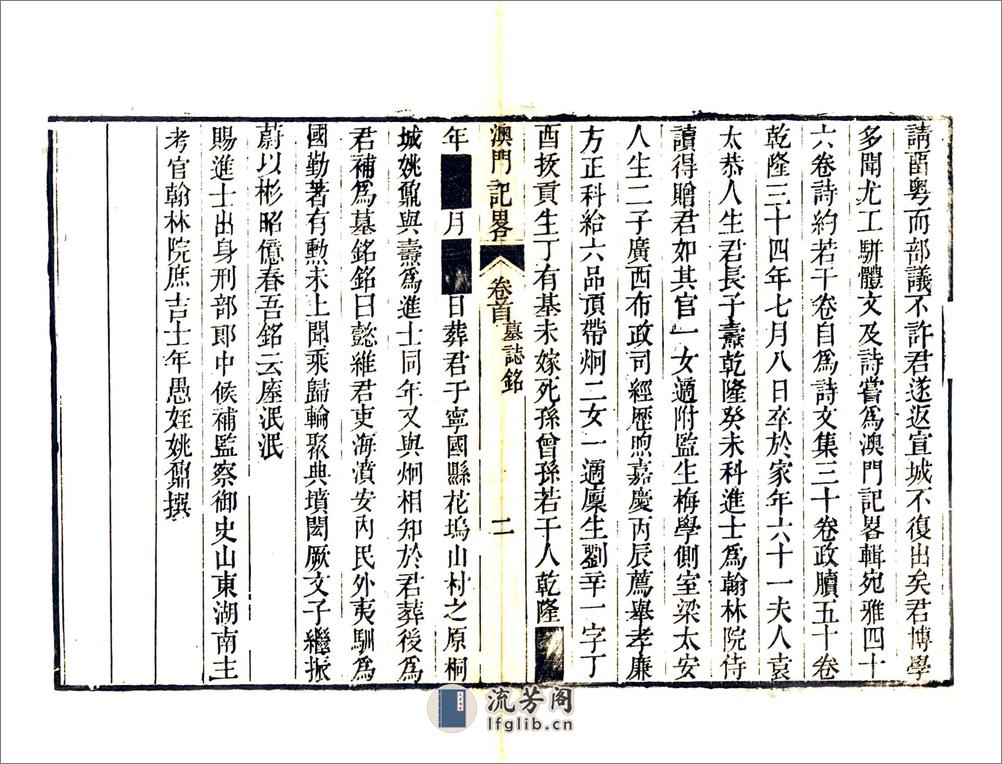 請畱粤而部議不許君遂返宣城不復出矣君博學
多聞尤工駢體文及詩嘗爲澳門記畧輯宛雅四十
六卷詩約若干卷自爲詩文集三十卷政牘五十卷
乾隆三十四年七月八日卒於家年六十一夫人袁
太恭人生君長子燾乾隆癸未科進士爲翰林院侍
讀得贈君如其官一女適附監生梅學側室梁太安
人生二子廣西布政司經歷煦嘉慶丙辰薦舉孝廉
方正科給六品頂帶炯二女一適廩生劉芉一字丁
酉拔貢生丁有基未嫁死孫曾孫若干人乾隆
澳門記畧
卷首
墓誌銘
二
年 月 日葬君于寧國縣花塢山村之原桐
城姚鼐與燾爲進士同年又與炯相知於君葬後爲
君補爲墓銘銘曰懿維君吏海濆安內民外夷馴爲
國勤著有勲未上聞乘歸輪聚典墳閎厥文子繼振
蔚以彬昭億春吾銘云廞泯泯
賜進士出身刑部郎中候補監察御史山東湖南主
考官翰林院庶吉士年愚姪姚鼐撰
流芳阁
lfglib.cn